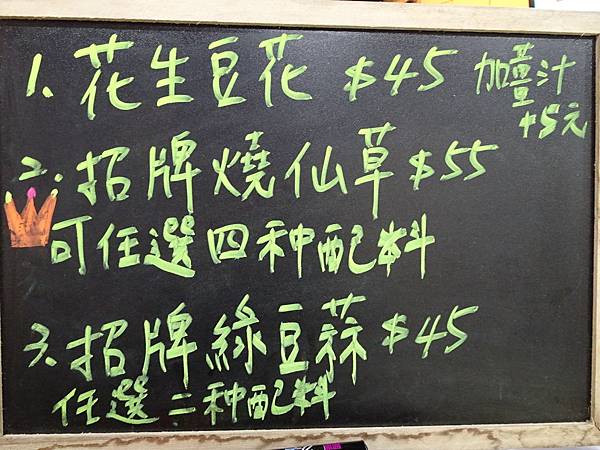 1. 花生豆花 $45 加薑汁
+5元
2. 招牌燒仙草 $55
可任選四种配料
3. 招牌綠豆蒜 $45
任選二种配料